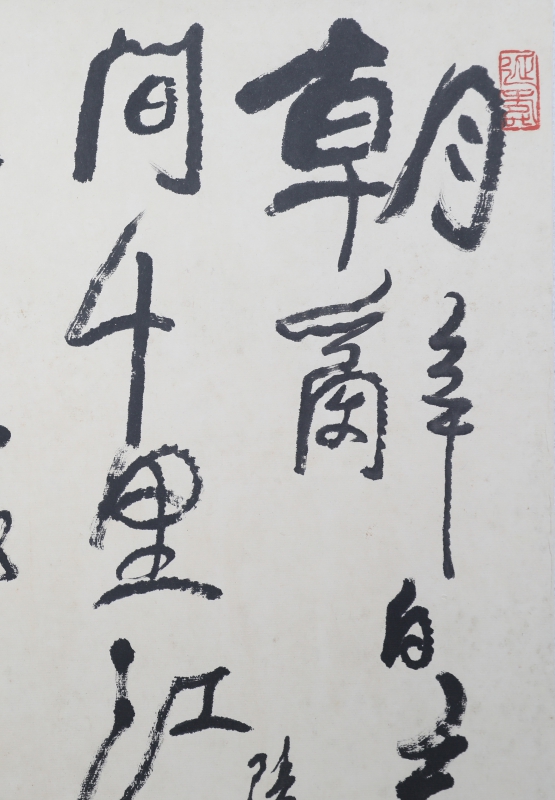 朝辭白
間千里江陵